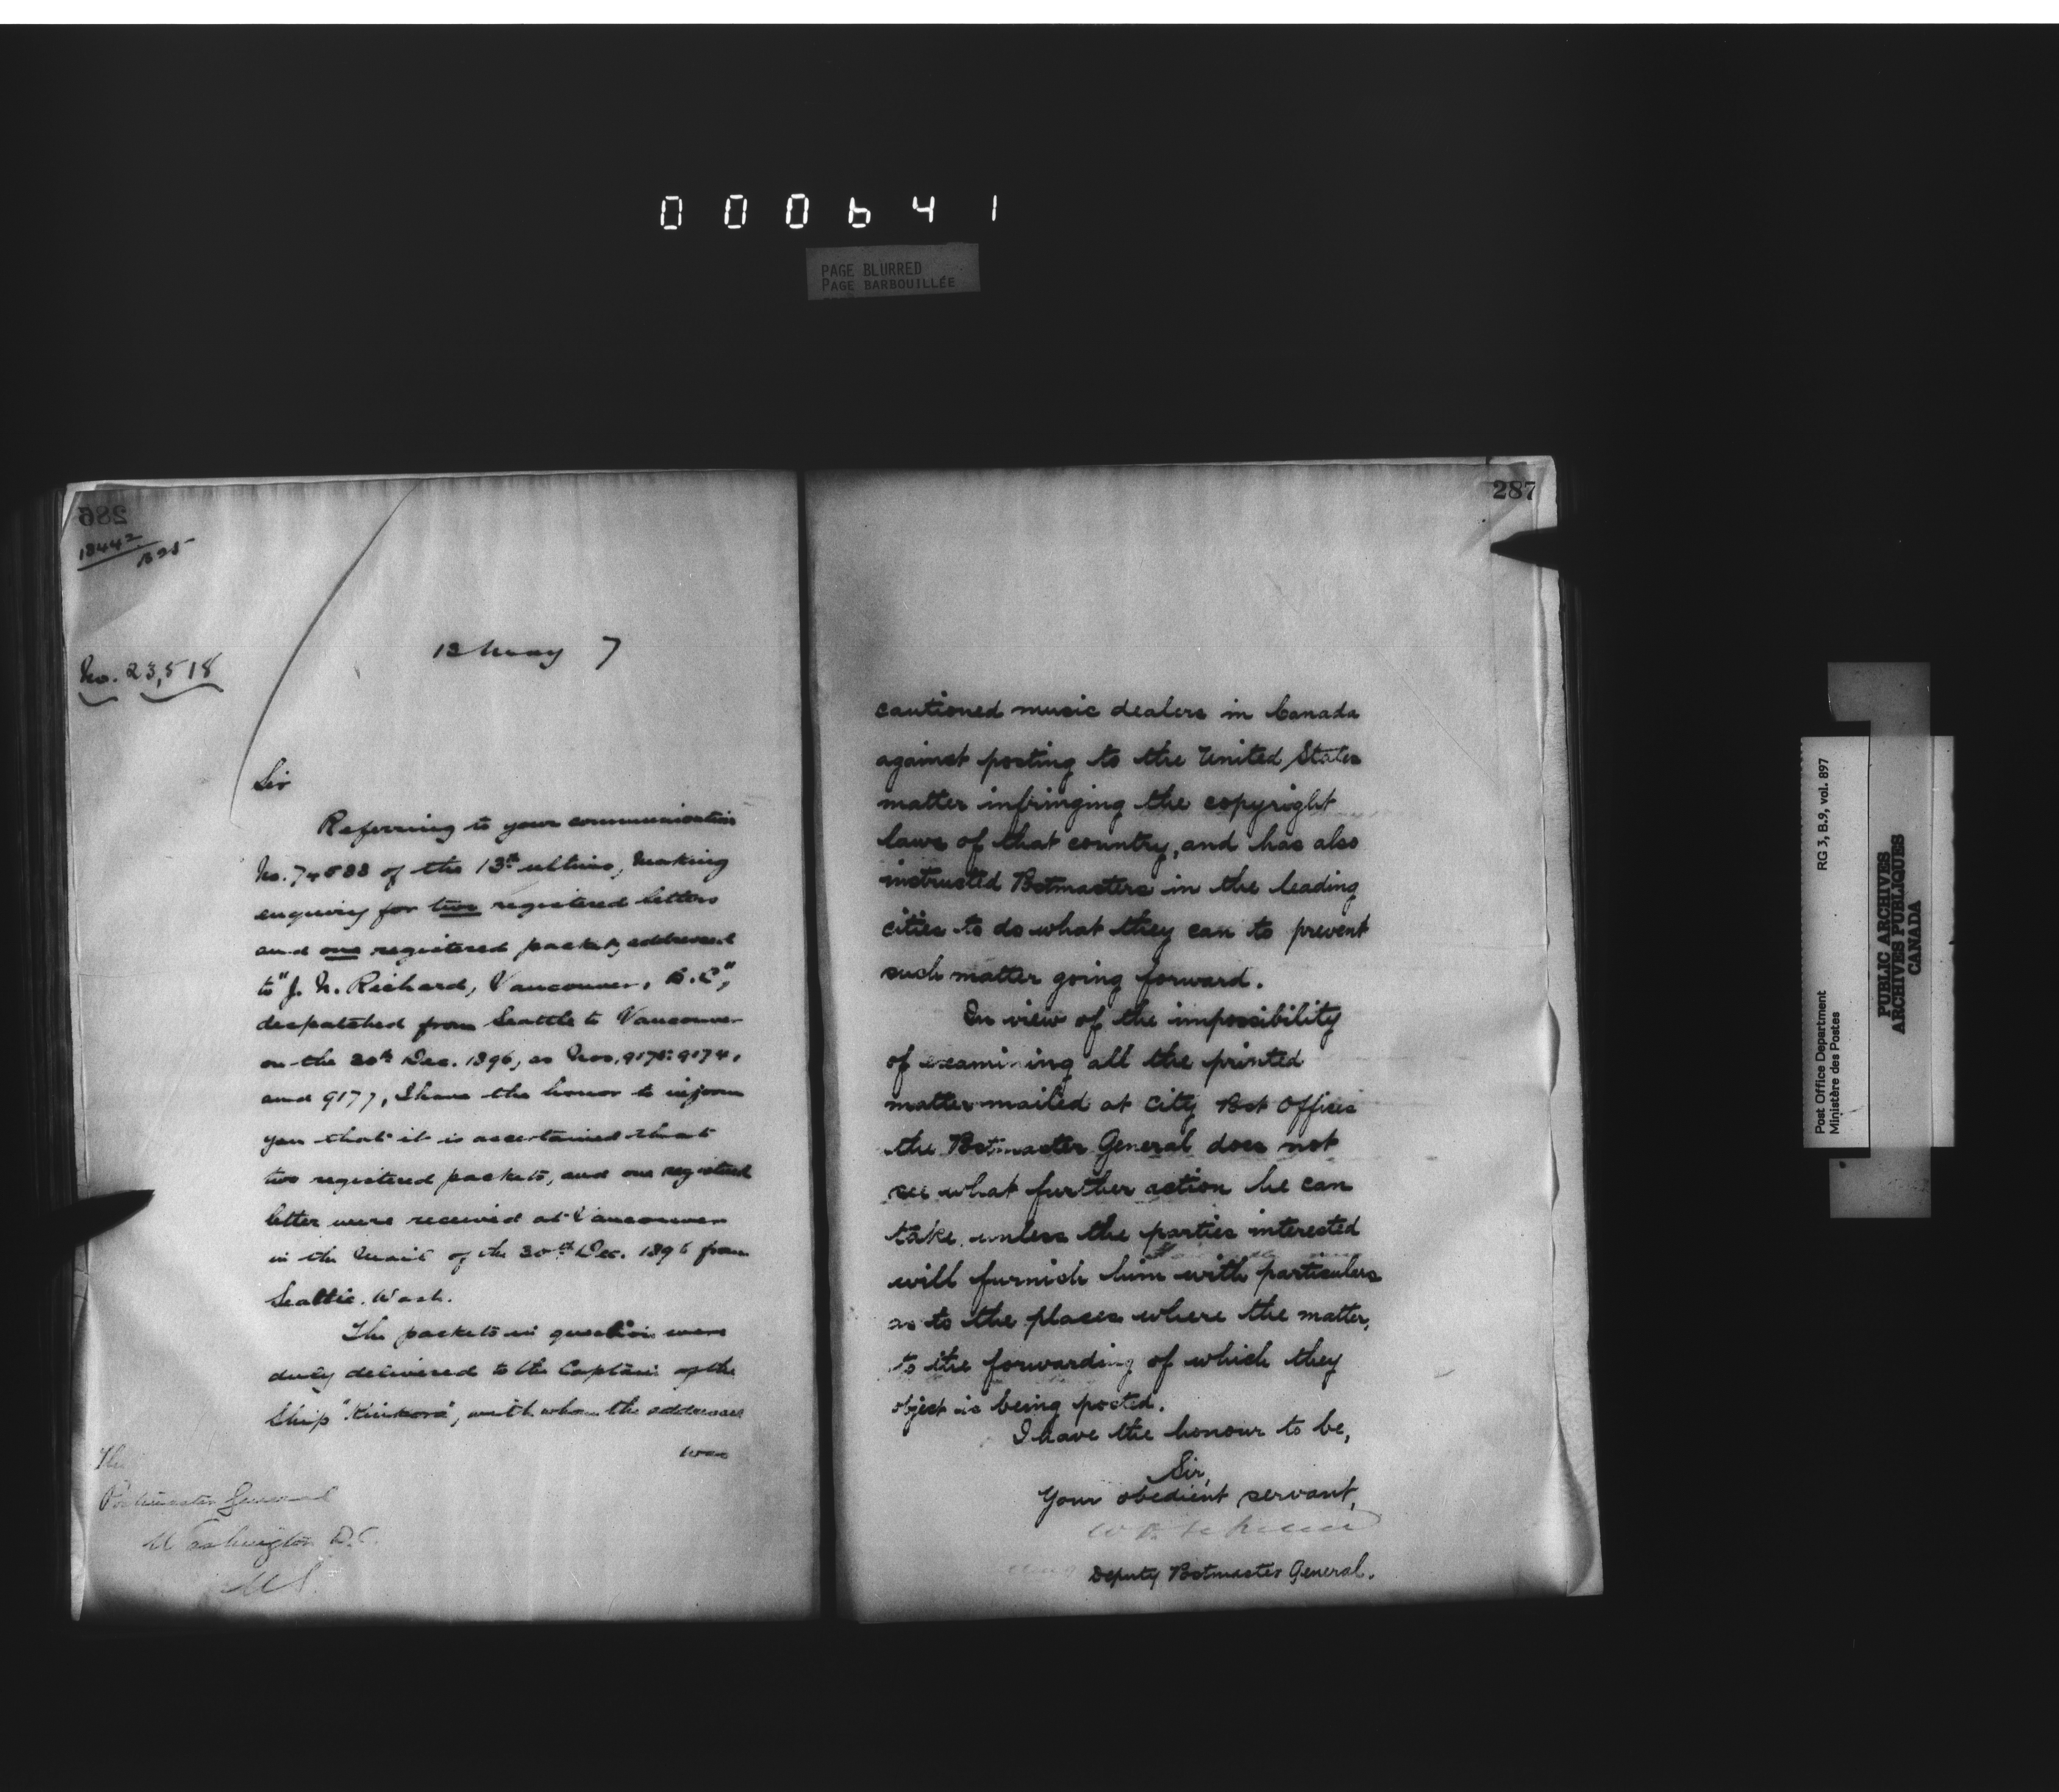 000641
PAGE BLURRED
PAGE BARBOUILLÉE
286
18442
B 25
12 May 7
No. 23,518
Sir
Referring to your communication
No. 74588 of the 13th ultimo, making
enquiry for two registered letters
and one registered packet, addressed
to "J. N. Richard, Vancouver, B.C.",
despatched from Seattle to Vancouver
on the 30th Dec. 1896, as Nos. 9174,
and 9177, I have the honor to inform
you that it is ascertained that
two registered packets, and one registered
letter were received at Vancouver
in the Mail of the 30th Dec. 1896 from
Seattle. Wash.
The packets in question were
duly delivered to the Captain of the
Ship "Kinkora", with whom the addressee
was
The
Postmaster General
Washington D.C.
U.S.
287
cautioned music dealers in Canada
against posting to the United States
matter infringing the copyright
laws of that country, and has also
instructed Postmasters in the leading
cities to do what they can to prevent
such matter going forward.
In view of the impossibility
of examining all the printed
matter mailed at City Post Offices
the Postmaster General does not
see what further action he can
take, unless the parties interested
will furnish him with particulars
as to the places where the matter,
to the forwarding of which they
object is being posted.
I have the honour to be,
Sir,
Your obedient servant,
Deputy Postmaster General.
Post Office Department
Ministère des Postes
RG 3, B.9, vol. 897
PUBLIC ARCHIVES
ARCHIVES PUBLIQUES
CANADA